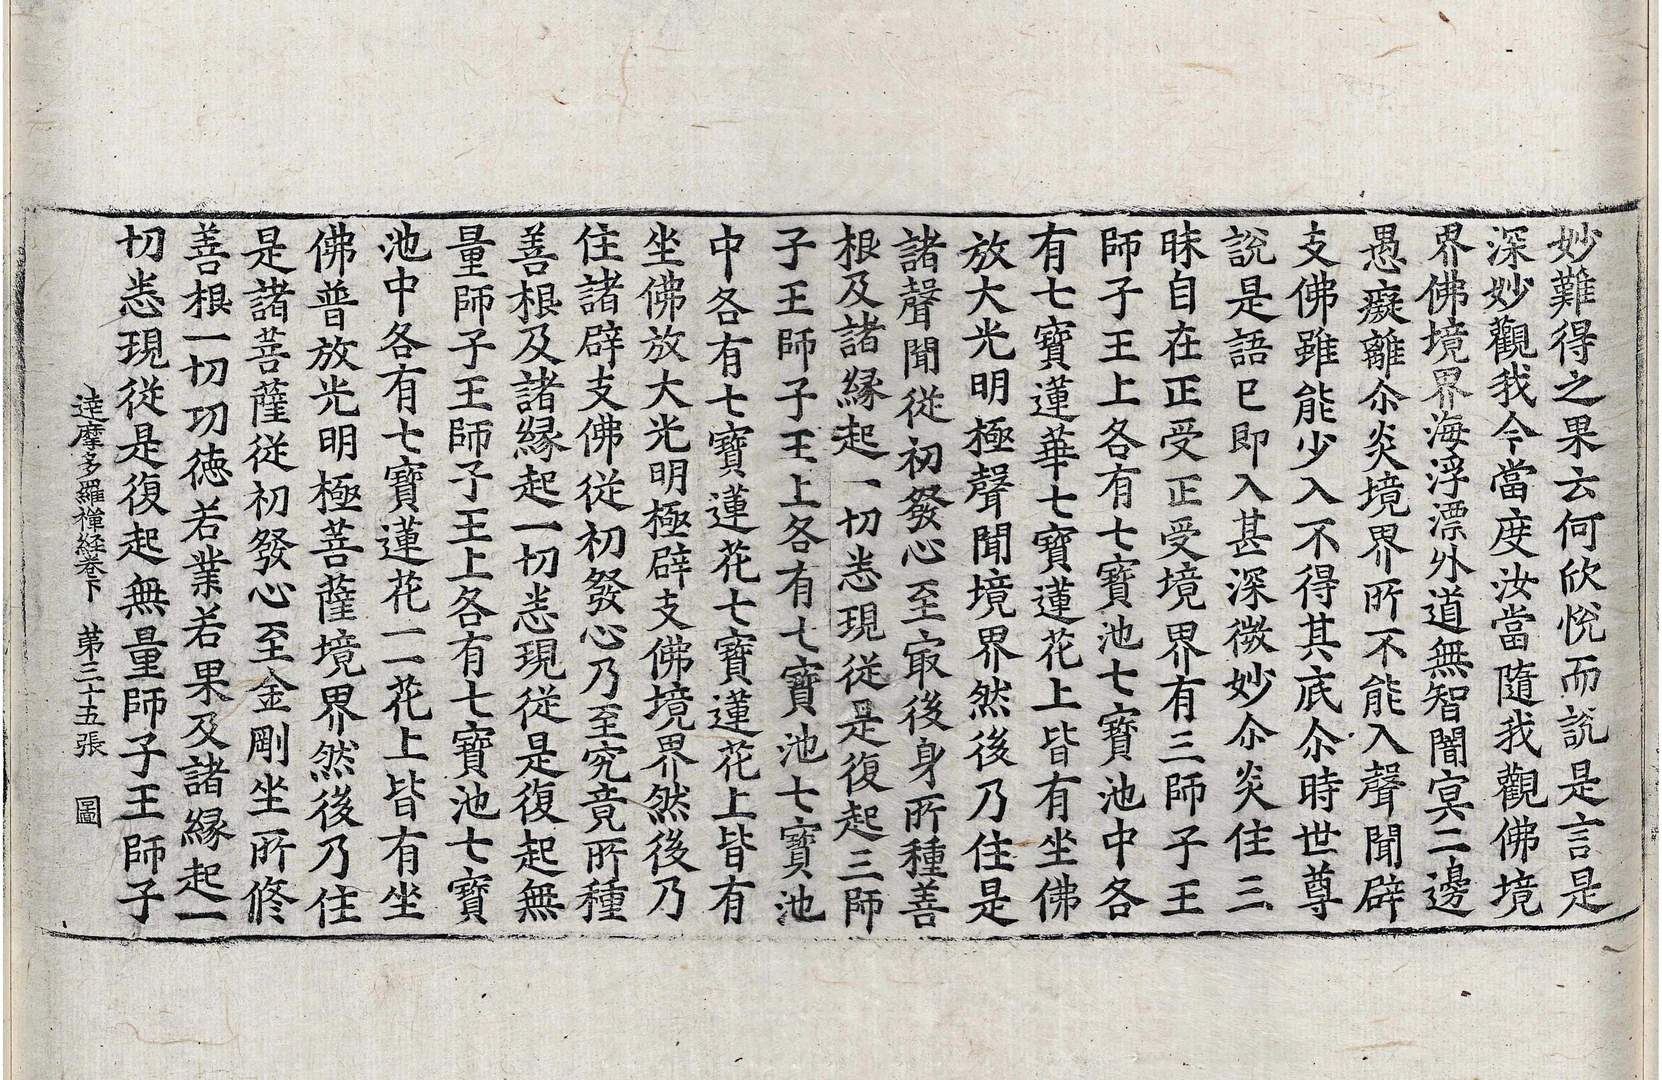 妙難得之果云何欣悅而說是言是
深妙觀我今當度汝當隨我觀佛境
界佛境界海浮漂外道無智闇冥二邊
愚癡離尒炎境界所不能入聲聞辟
支佛雖能少入不得其底尒時世尊
說是語已即入甚深微妙尒炎住三
昧自在正受正受境界有三師子王
師子王上各有七寶池七寶池中各
有七寶蓮華七寶蓮花上皆有坐佛
放大光明極聲聞境界然後乃住是
諸聲聞從初發心至冣後身所種善
根及諸緣起一切悉現從是復起三師
子王師子王上各有七寶池七寶池
中各有七寶蓮花七寶蓮花上皆有
坐佛放大光明極辟支佛境界然後乃
住諸辟支佛從初發心乃至究竟所種
善根及諸緣起一切悉現從是復起無
量師子王師子王上各有七寶池七寶
池中各有七寶蓮花一一花上皆有坐
佛普放光明極菩薩境界然後乃住
是諸菩薩從初發心至金剛坐所修
善根一切功德若業若果及諸緣起一
切悉現從是復起無量師子王師子
達摩多羅禪経卷下 第三十五張 圖